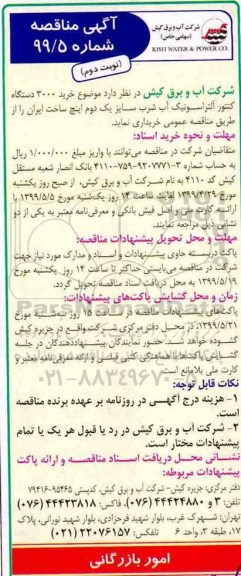 شرکت آب و برق کیش
(سهامی خاص)
KISH WATER & POWER CO.
آگهی مناقصه
شماره ۹۹/۵
(نوبت دوم)
شرکت آب و برق کیش در نظر دارد موضوع خرید ۳۰۰۰ دستگاه
کنتور آلتراسونیک آب شرب سایز یک دوم اینچ ساخت ایران را از
طریق مناقصه عمومی خریداری نماید.
مهلت و نحوه خرید اسناد:
متقاضیان شرکت در مناقصه می‌توانند با واریز مبلغ ۱/۰۰۰/۰۰۰ ریال
به حساب شماره ۳-۹۲۰۷۷۷۱-۷۵۹-۴۱۱۰ بانک انصار شعبه مستقل
کیش کد ۴۱۱۰ به نام شرکت آب و برق کیش، از صبح روز یکشنبه
مورخ ۱۳۹۹/۴/۲۹ لغایت ساعت ۱۴ روز یک‌شنبه مورخ ۱۳۹۹/۵/۵ با
ارائه درخواست و اصل فیش بانکی و معرفی‌نامه معتبر به یکی از دو
نشانی زیر مراجعه نمایند.
مهلت و محل تحویل پیشنهادات مناقصه:
پاکت دربسته حاوی پیشنهادات و اسناد و مدارک مورد نیاز جهت
شرکت در مناقصه می‌بایستی حداکثر تا ساعت ۱۴ روز یکشنبه مورخ
۱۳۹۹/۵/۱۹ به محل دریافت اسناد مناقصه تحویل گردد.
زمان و محل گشایش پاکت‌های پیشنهادات:
پاکت‌های پیشنهادات مناقصه در ساعت ۱۵ روز سه‌شنبه مورخ
۱۳۹۹/۵/۲۱، در محل دفتر مرکزی شرکت واقع در جزیره کیش
گشوده خواهد شد. حضور نمایندگان پیشنهاددهندگان در جلسه
گشایش پاکت‌ها با هماهنگی کتبی قبلی و ارائه معرفی‌نامه معتبر و
کارت ملی بلامانع است.
۰۲۱-۸۸۳۴۹۶۷۰
نکات قابل توجه:
۱- هزینه درج آگهی در روزنامه بر عهده برنده مناقصه
است.
۲- شرکت آب و برق کیش در رد یا قبول هر یک یا تمام
پیشنهادات مختار است.
نشانی محل دریافت اسناد مناقصه و ارائه پاکت
پیشنهادات مربوطه:
دفتر مرکزی: جزیره کیش- شرکت آب و برق کیش، کدپستی ۹۵۴۶۵-۷۹۴۱۶
تلفن: ۳ و ۴۴۴۲۴۸۸۰ (۰۷۶) فاکس: ۴۴۴۲۳۸۱۸ (۰۷۶)
تهران: شهرک غرب، بلوار شهید فرحزادی، بلوار شهید نورانی، پلاک
۱۷، طبقه ۳، واحد ۶ تلفکس: ۲۲۰۷۶۱۵۷ (۰۲۱)
امور بازرگانی